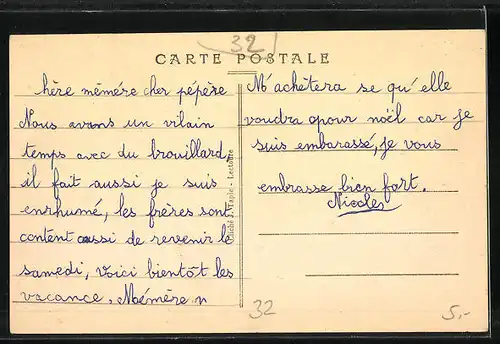 32
CARTE POSTALE
hère mémére cher pépère
Nous avons un vilain
temps avec du brouillard,
il fait aussi je suis
enrhumé, les frères sont
content aussi de revenir le
samedi, voici bientôt les
vacance. Mémère n
Lectoure
M'achètera se qu'elle
voudra pour noël car je
suis embarassé, je vous
embrasse bien fort.
Nicoles
32
5,-